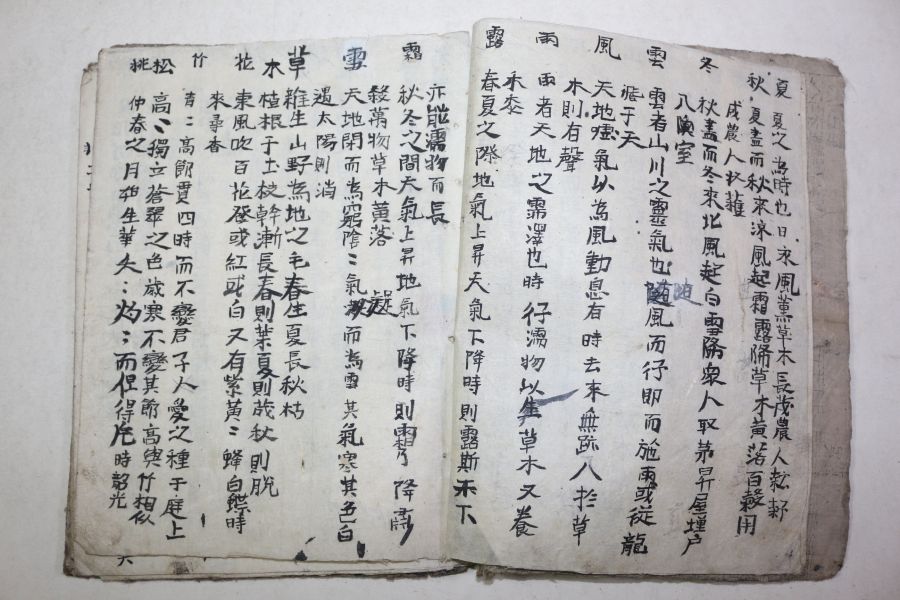 夏 夏之為時也日永風薰草木長茂農人耘耔
秋 夏盡而秋來涼風起霜露降草木黃落百穀用
成農人收穫
冬 秋盡而冬來北風起白雪降衆人取茅昇屋墐户
入演室
雲 雲者山川之靈氣也隨風而行即而施雨或從龍
於于天
風 天地噫氣以為風動息有時去來無跡入於草
木則有聲
雨 雨者天地之霈澤也時行濡物以生草木又養
禾黍
露 春夏之際地氣上昇天氣下降時則露斯禾下
亦能濡物而長
霜 秋冬之間天氣上昇地氣下降時則霜降
殺萬物草木黃落
雪 天地閉而為窮陰陰氣凝而為雪其氣寒其色白
遇太陽則消
草 雜生山野為地之毛春生夏長秋枯
木 植根于土枝幹漸長春則葉夏則茂秋則脱
花 東風吹百花發或紅或白又有紫黃黃蜂白蝶時
來尋香
竹 青青高節貫四時而不變君子人愛之種于庭上
松 高高獨立蒼翠之色歲寒不變其節高與竹相似
桃 仲春之月始生華夭夭灼灼而俱得 時韶光